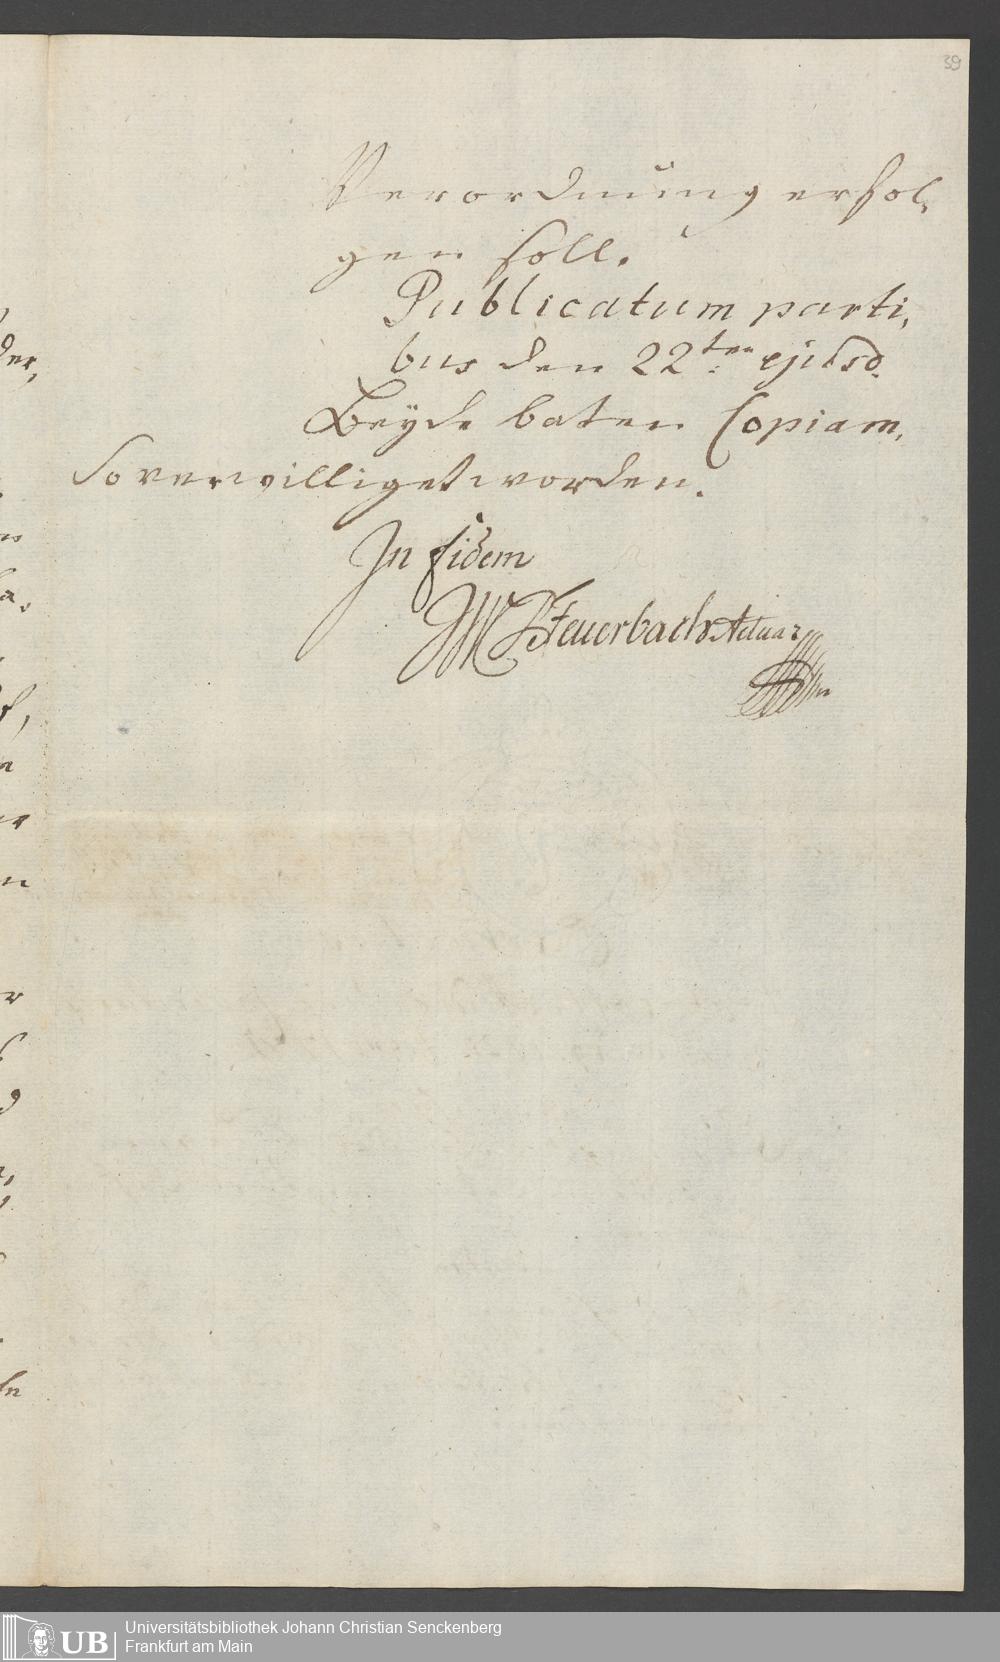 39
Verordnung erfol,
gen soll.
Publicatum parti,
bus den 22ten ejusd.
Beyde baten Copiam,
So verwilliget worden.
In fidem
Feuerbach Actuar
der,
Universitätsbibliothek Johann Christian Senckenberg
Frankfurt am Main
UB